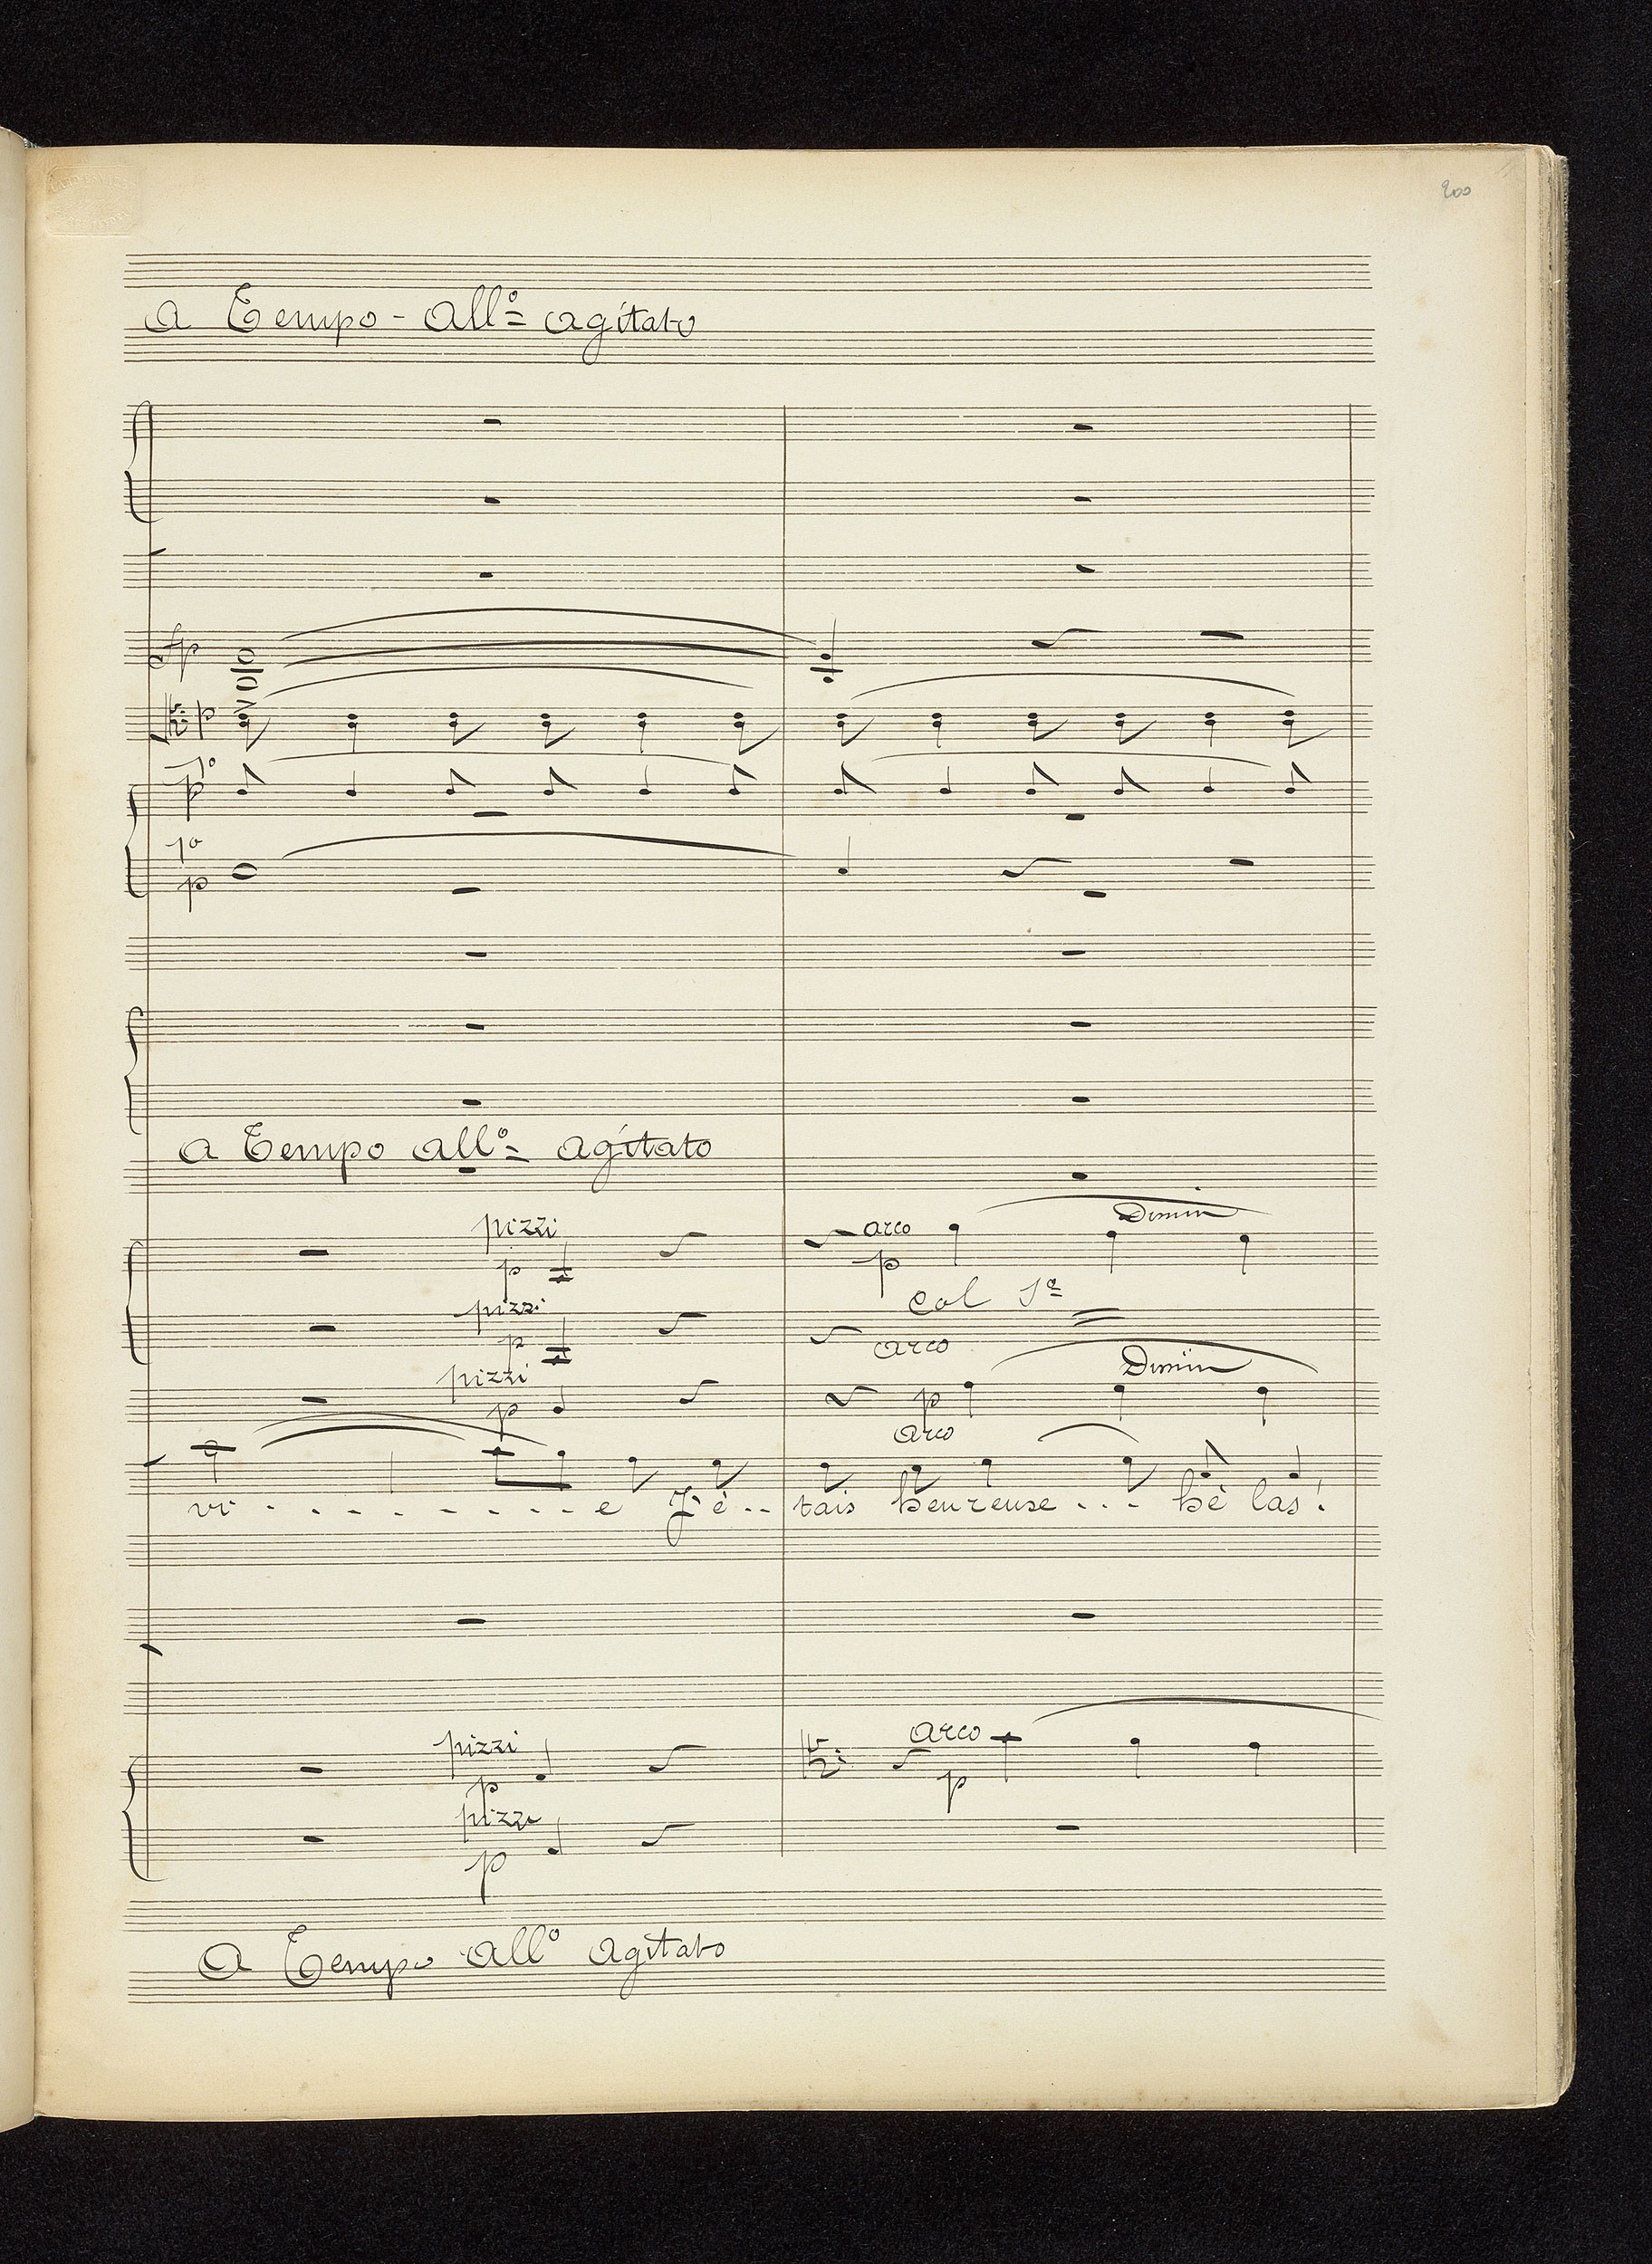 200
A Tempo - All° = agitato
fp
p
1°
p
1°
p
A Tempo all° = agitato
pizzi
arco
Dimin
p
p
Col 1°
pizzi
p
arco
pizzi
Dimin
p
p
arco
vi - . . - . - - - . - e J'é - - tais heureuse . . . hé las!
pizzi
arco
p
p
pizzi
p
A Tempo all° agitato